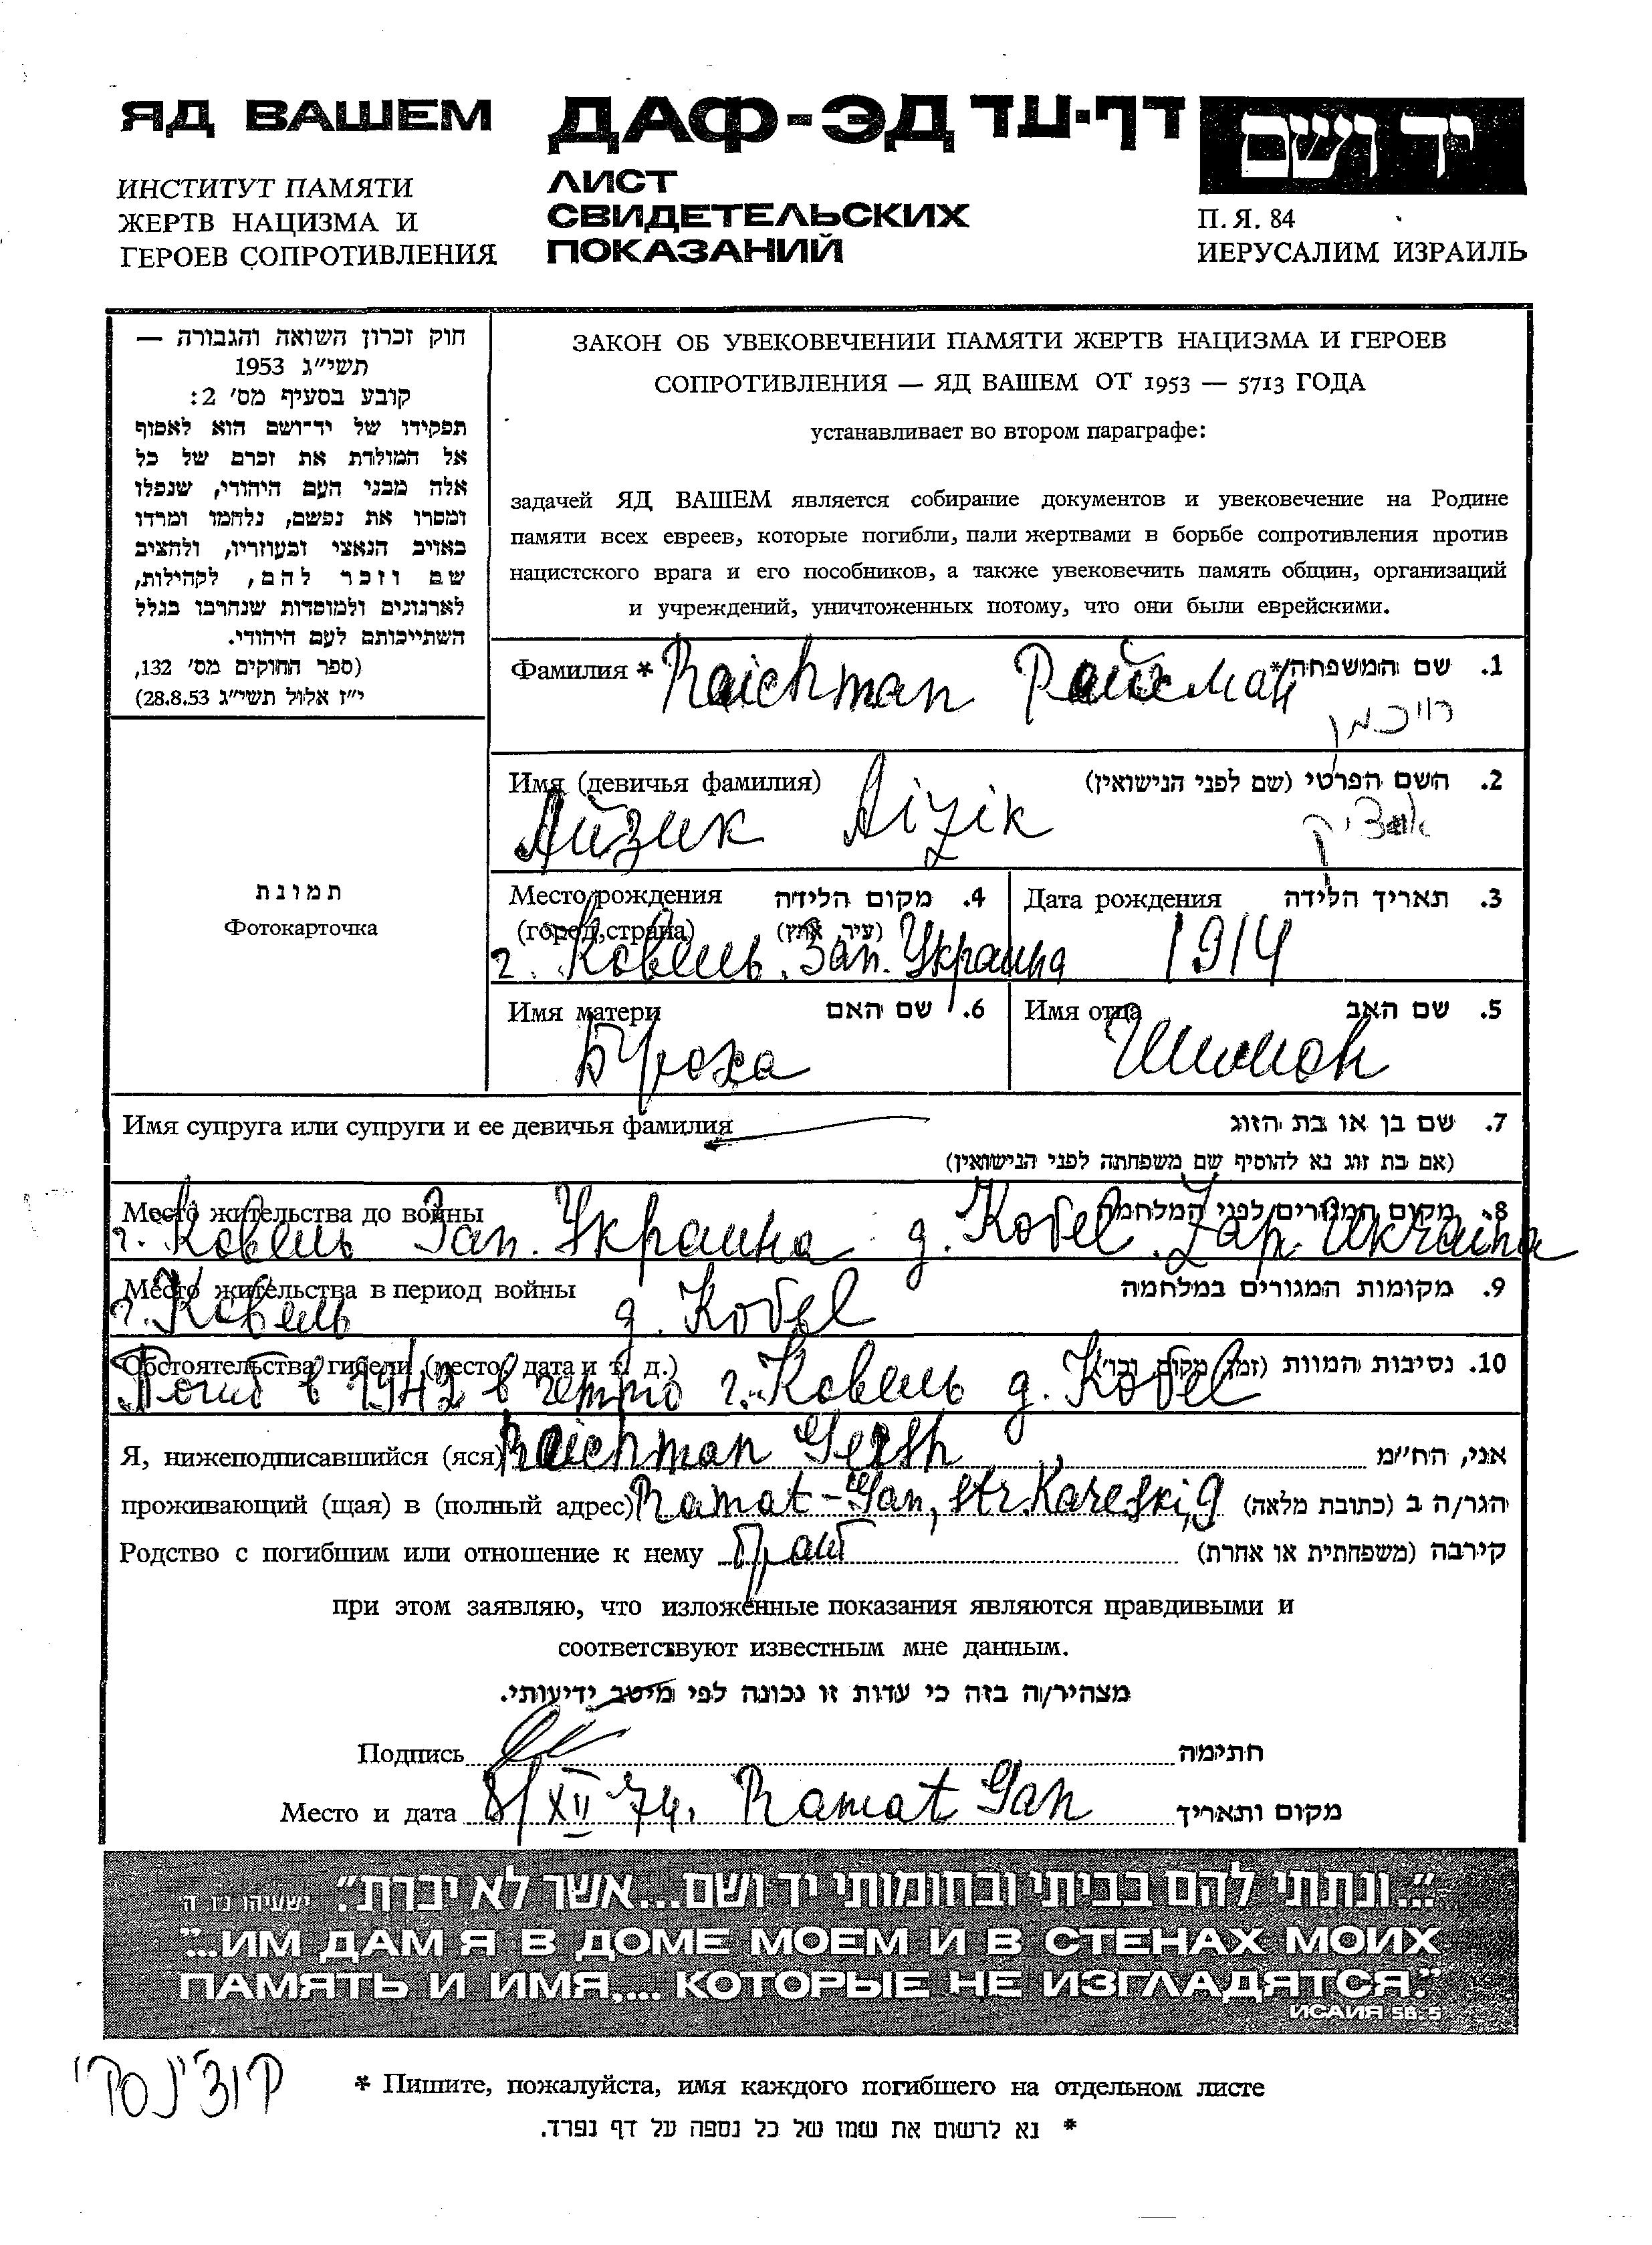 ЯД ВАШЕМ
ИНСТИТУТ ПАМЯТИ
ЖЕРТВ НАЦИЗМА И
ГЕРОЕВ СОПРОТИВЛЕНИЯ
ДАФ-ЭД דף-עד
ЛИСТ
СВИДЕТЕЛЬСКИХ
ПОКАЗАНИЙ
יד ושם
П. Я. 84
ИЕРУСАЛИМ ИЗРАИЛЬ
חוק זכרון השואה והגבורה —
תשי״ג 1953
קובע בסעיף מס׳ 2:
תפקידו של יד־ושם הוא לאסוף
אל המולדת את זכרם של כל
אלה מבני העם היהודי, שנפלו
ומסרו את נפשם, נלחמו ומרדו
באויב הנאצי ובעוזריו, ולהציב
שם וזכר להם, לקהילות,
לארגונים ולמוסדות שנחרבו בגלל
השתייכותם לעם היהודי.
(ספר החוקים מס׳ 132,
י״ז אלול תשי״ג 28.8.53)
ЗАКОН ОБ УВЕКОВЕЧЕНИИ ПАМЯТИ ЖЕРТВ НАЦИЗМА И ГЕРОЕВ
СОПРОТИВЛЕНИЯ — ЯД ВАШЕМ ОТ 1953 — 5713 ГОДА
устанавливает во втором параграфе:
задачей ЯД ВАШЕМ является собирание документов и увековечение на Родине
памяти всех евреев, которые погибли, пали жертвами в борьбе сопротивления против
нацистского врага и его пособников, а также увековечить память общин, организаций
и учреждений, уничтоженных потому, что они были еврейскими.
Фамилия * Raichman Райхман שם המשפחה* .1
רייכמן
Имя (девичья фамилия) השם הפרטי (שם לפני הנישואין) .2
Айзик Aizik אייזיק
Место рождения מקום הלידה .4
(город, страна) (עיר, ארץ)
г. Ковель. Зап. Украина
Дата рождения תאריך הלידה .3
1914
Имя матери שם האם .6
Броха
Имя отца שם האב .5
Шимон
תמונת
Фотокарточка
Имя супруга или супруги и ее девичья фамилия שם בן או בת הזוג .7
(אם בת זוג נא להוסיף שם משפחתה לפני הנישואין)
Место жительства до войны מקום המגורים לפני המלחמה .8
г. Ковель Зап. Украина g. Kovel. Zap. Ukraina
Место жительства в период войны מקומות המגורים במלחמה .9
г. Ковель g. Kovel
Обстоятельства гибели (место, дата и т. д.) נסיבות המוות (זמן, מקום, וכו׳) .10
Погиб в 1942 в гетто г. Ковель g. Kovel
Я, нижеподписавшийся (яся) Raichman Gersh אני, הח״מ
проживающий (щая) в (полный адрес) Ramat-Gan, str. Kareski, 9 הגר/ה ב (כתובת מלאה)
Родство с погибшим или отношение к нему Брат קירבה (משפחתית או אחרת)
при этом заявляю, что изложенные показания являются правдивыми и
соответствуют известным мне данным.
מצהיר/ה בזה כי עדות זו נכונה לפי מיטב ידיעותי.
Подпись חתימה
Место и дата 8/XII 74. Ramat Gan מקום ותאריך
״...ונתתי להם בביתי ובחומותי יד ושם...אשר לא יכרת.״ ישעיהו נו ה׳
"...ИМ ДАМ Я В ДОМЕ МОЕМ И В СТЕНАХ МОИХ
ПАМЯТЬ И ИМЯ,... КОТОРЫЕ НЕ ИЗГЛАДЯТСЯ."
ИСАИЯ 56. 5
* Пишите, пожалуйста, имя каждого погибшего на отдельном листе
* נא לרשום את שמו של כל נספה על דף נפרד.